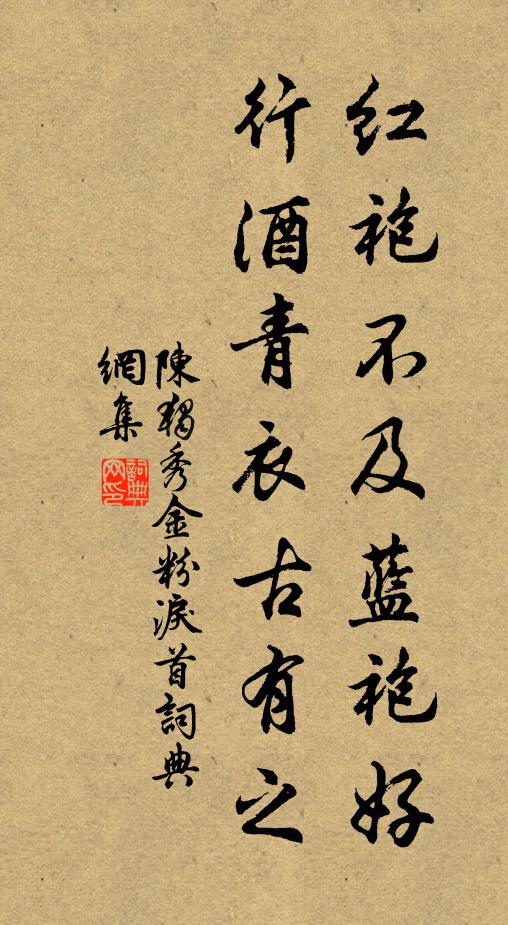 红袍不及蓝袍好
行酒青衣古有之
陳獨秀金粉淚首詞典
網集
詞典
网印